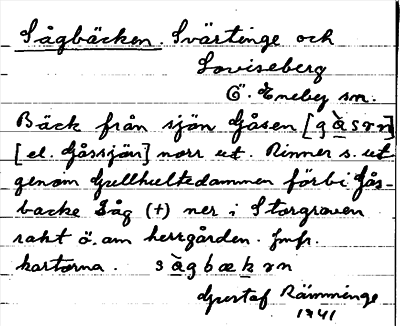 Sågbäcken. Svärtinge och
Loviseberg
Ö. Eneby sn.
Bäck från sjön Gåsen [g à̱ s ɜ n]
[el. Gåssjön] norr ut. Rinner s. ut
genom Gullhultsdammen förbi Gås-
backe Såg (+) ner i Storgraven
rakt ö. om herrgården. Jmfr.
kartorna. s à̱ g b æ ḵ ɜ n
Gustaf Rämminge
1941